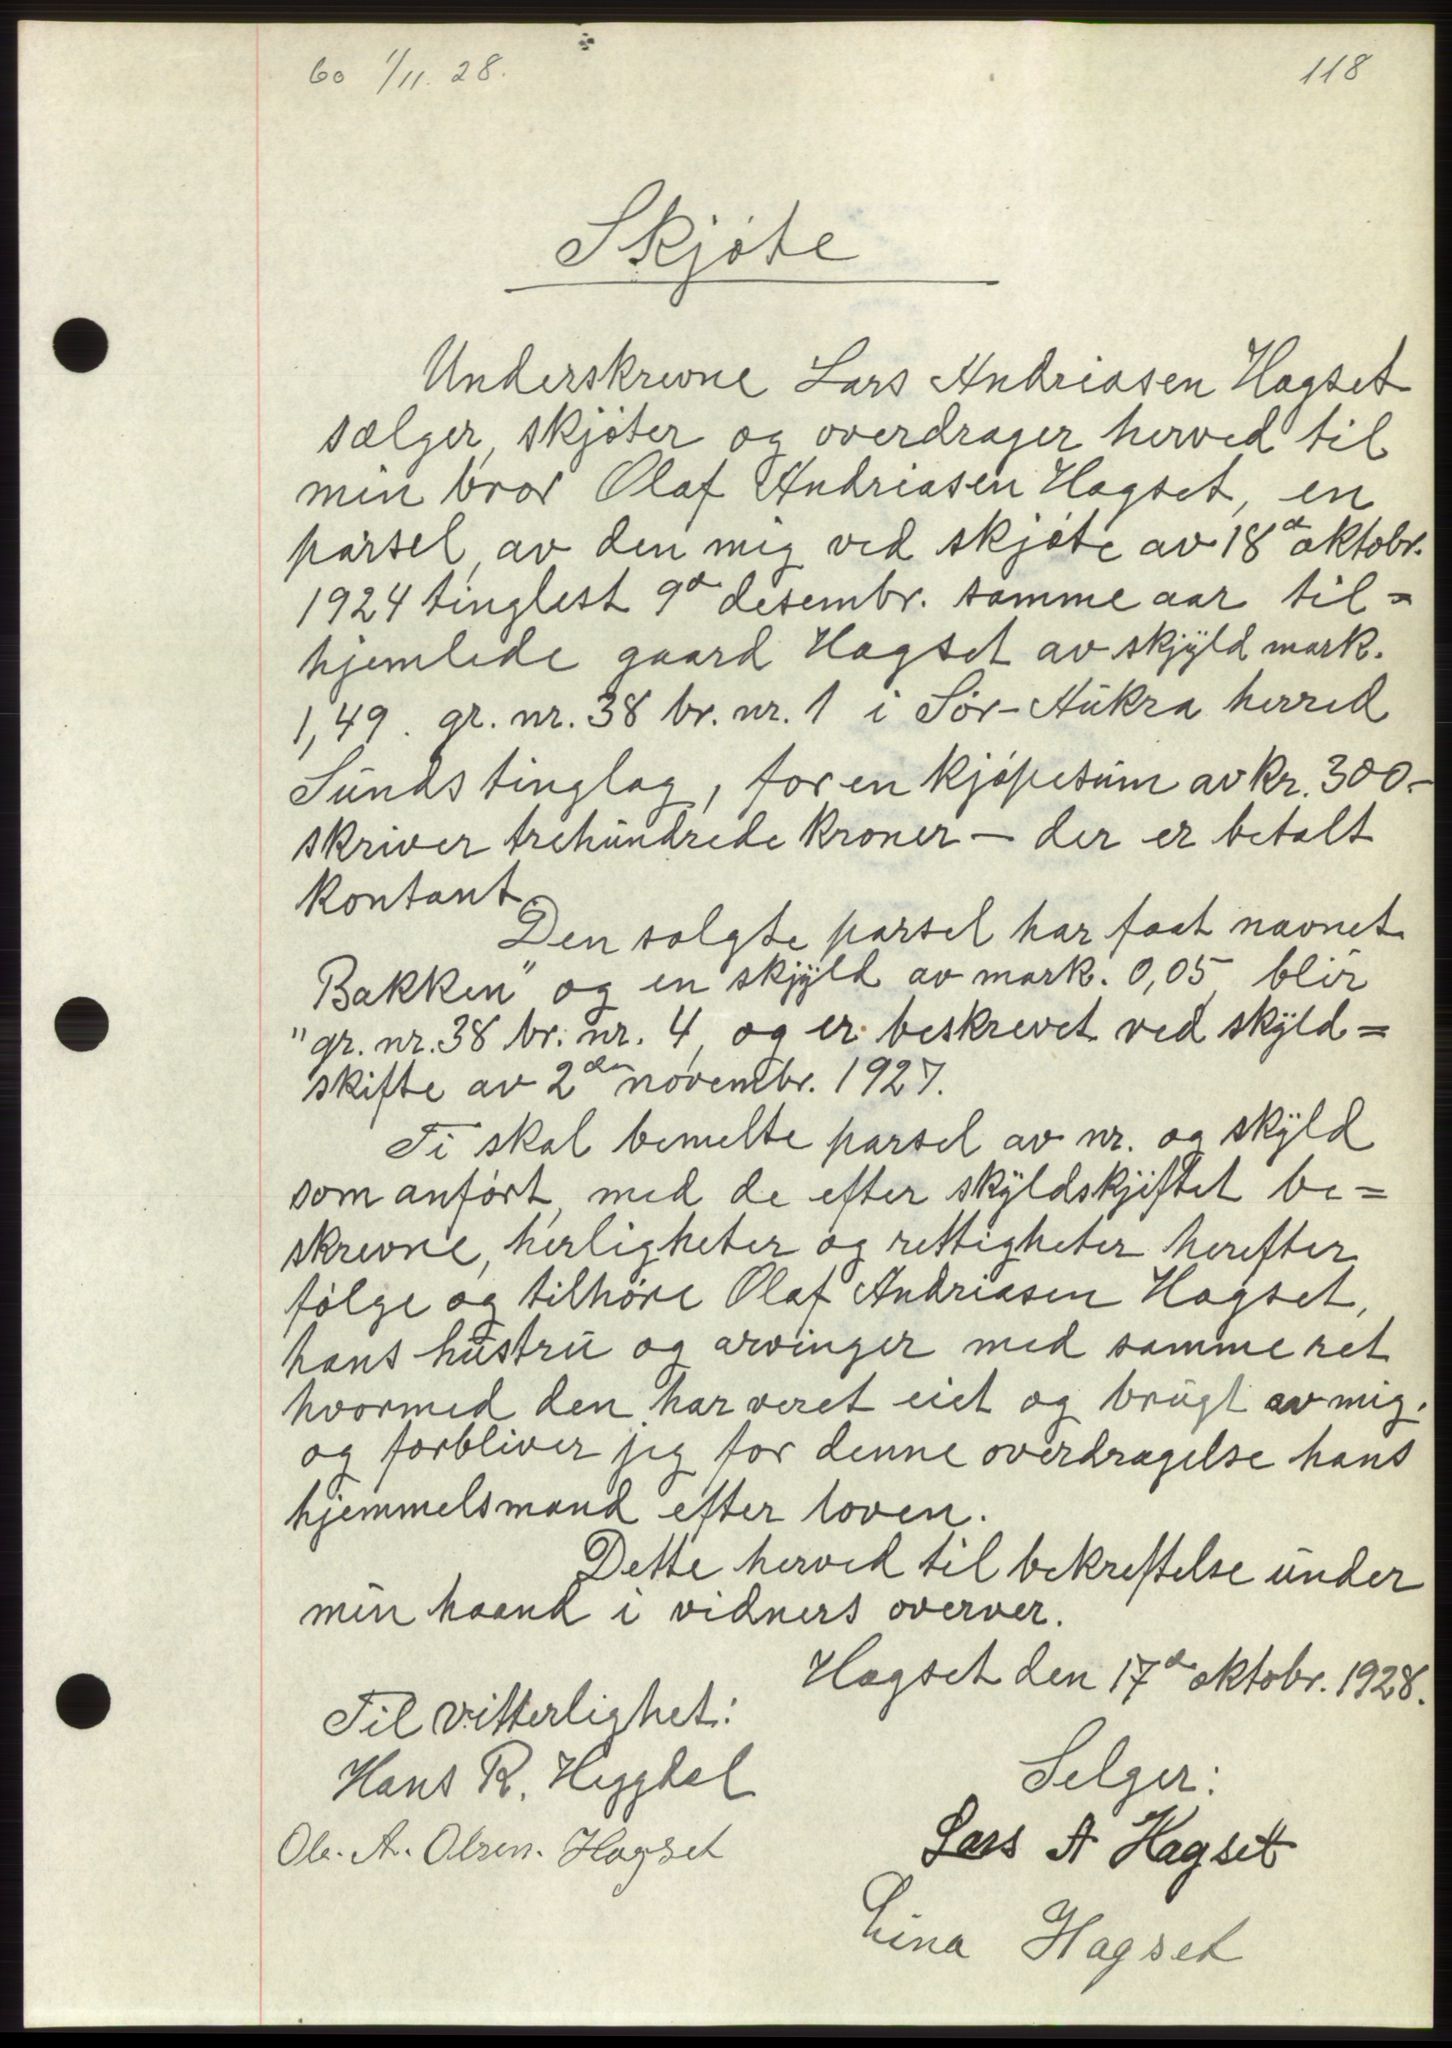 60 1/11. 28.
118
Skjøte
Underskrevne Lars Andriasen Hagset
sælger, skjøter og overdrager herved til
min bror Olaf Andriasen Hagset, en
parsel, av den mig ved skjøte av 18d oktobr.
1924 tinglest 9d desembr. samme aar til=
hjemlede gaard Hagset av skjyld mark.
1,49. gr. nr. 38 br. nr. 1 i Sør-Aukra herred
Sunds tinglag, for en kjøpesum av kr. 300.-
skriver trehundrede kroner - der er betalt
kontant.
Den solgte parsel har faat navnet
Bakken" og en skjyld av mark. 0,05, blir
"gr. nr. 38 br. nr. 4, og er beskrevet ved skyld=
skifte av 2den novembr. 1927.
Ti skal bemelte parsel av nr. og skyld
som anført, med de efter skyldskjiftet be=
skrevne, herligheter og rettigheter herefter
følge og tilhøre Olaf Andriasen Hagset,
hans hustru og arvinger med samme ret
hvormed den har veret eiet og brugt av mig.
og forbliver jeg for denne overdragelse hans
hjemmelsmand efter loven.
Dette herved til bekreftelse under
min haand i vidners overver.
Hagset den 17d oktobr. 1928.
Til vitterlighet:
Hans R. Heggdal
Ole. A. Olsen. Hagset
Selger:
Lars A Hagset
Lina Hagset